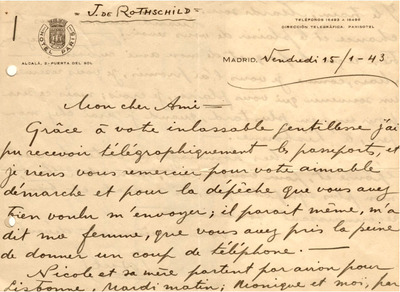 - J. DE ROTHSCHILD -
HOTEL PARIS
ALCALÁ, 2-PUERTA DEL SOL
TELÉFONOS
DIRECCIÓN TELEGRÁFICA: PARISOTEL
MADRID, Vendredi 15/1-43
Mon cher Ami —
Grâce à vote inlassable gentillesse j'ai
pu recevoir télégraphiquement le passeport, et
je viens vous remercier pour vote aimable
démarche et pour la depêche que vous avez
bien voulu m'envoyer; il parait même, m'a
dit ma femme, que vous avez pris la peine
de donner un coup de téléphone. —
Nicole et sa mère partent par avion pour
Lisbonne, Mardi matin; Monique et moi, par